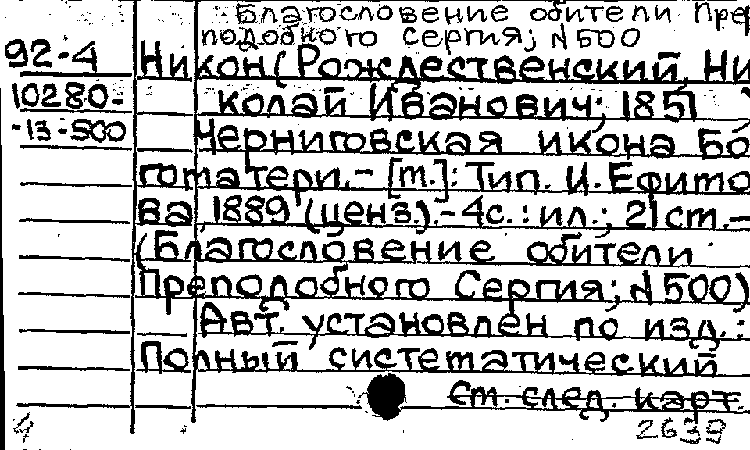 Благословение обители Пре
подобного Сергия; N 500
92-4 Никон (Рождественский, Ни
10280- колай Иванович; 1851
-13-500 Черниговская икона Бо
гоматери. - [М.]: Тип. И. Ефимо
ва, 1889 (ценз.). - 4с.: ил.; 21 см. -
(Благословение обители
Преподобного Сергия; N 500)
Авт. установлен по изд.:
Полный систематический
См. след. карт.
4 2639